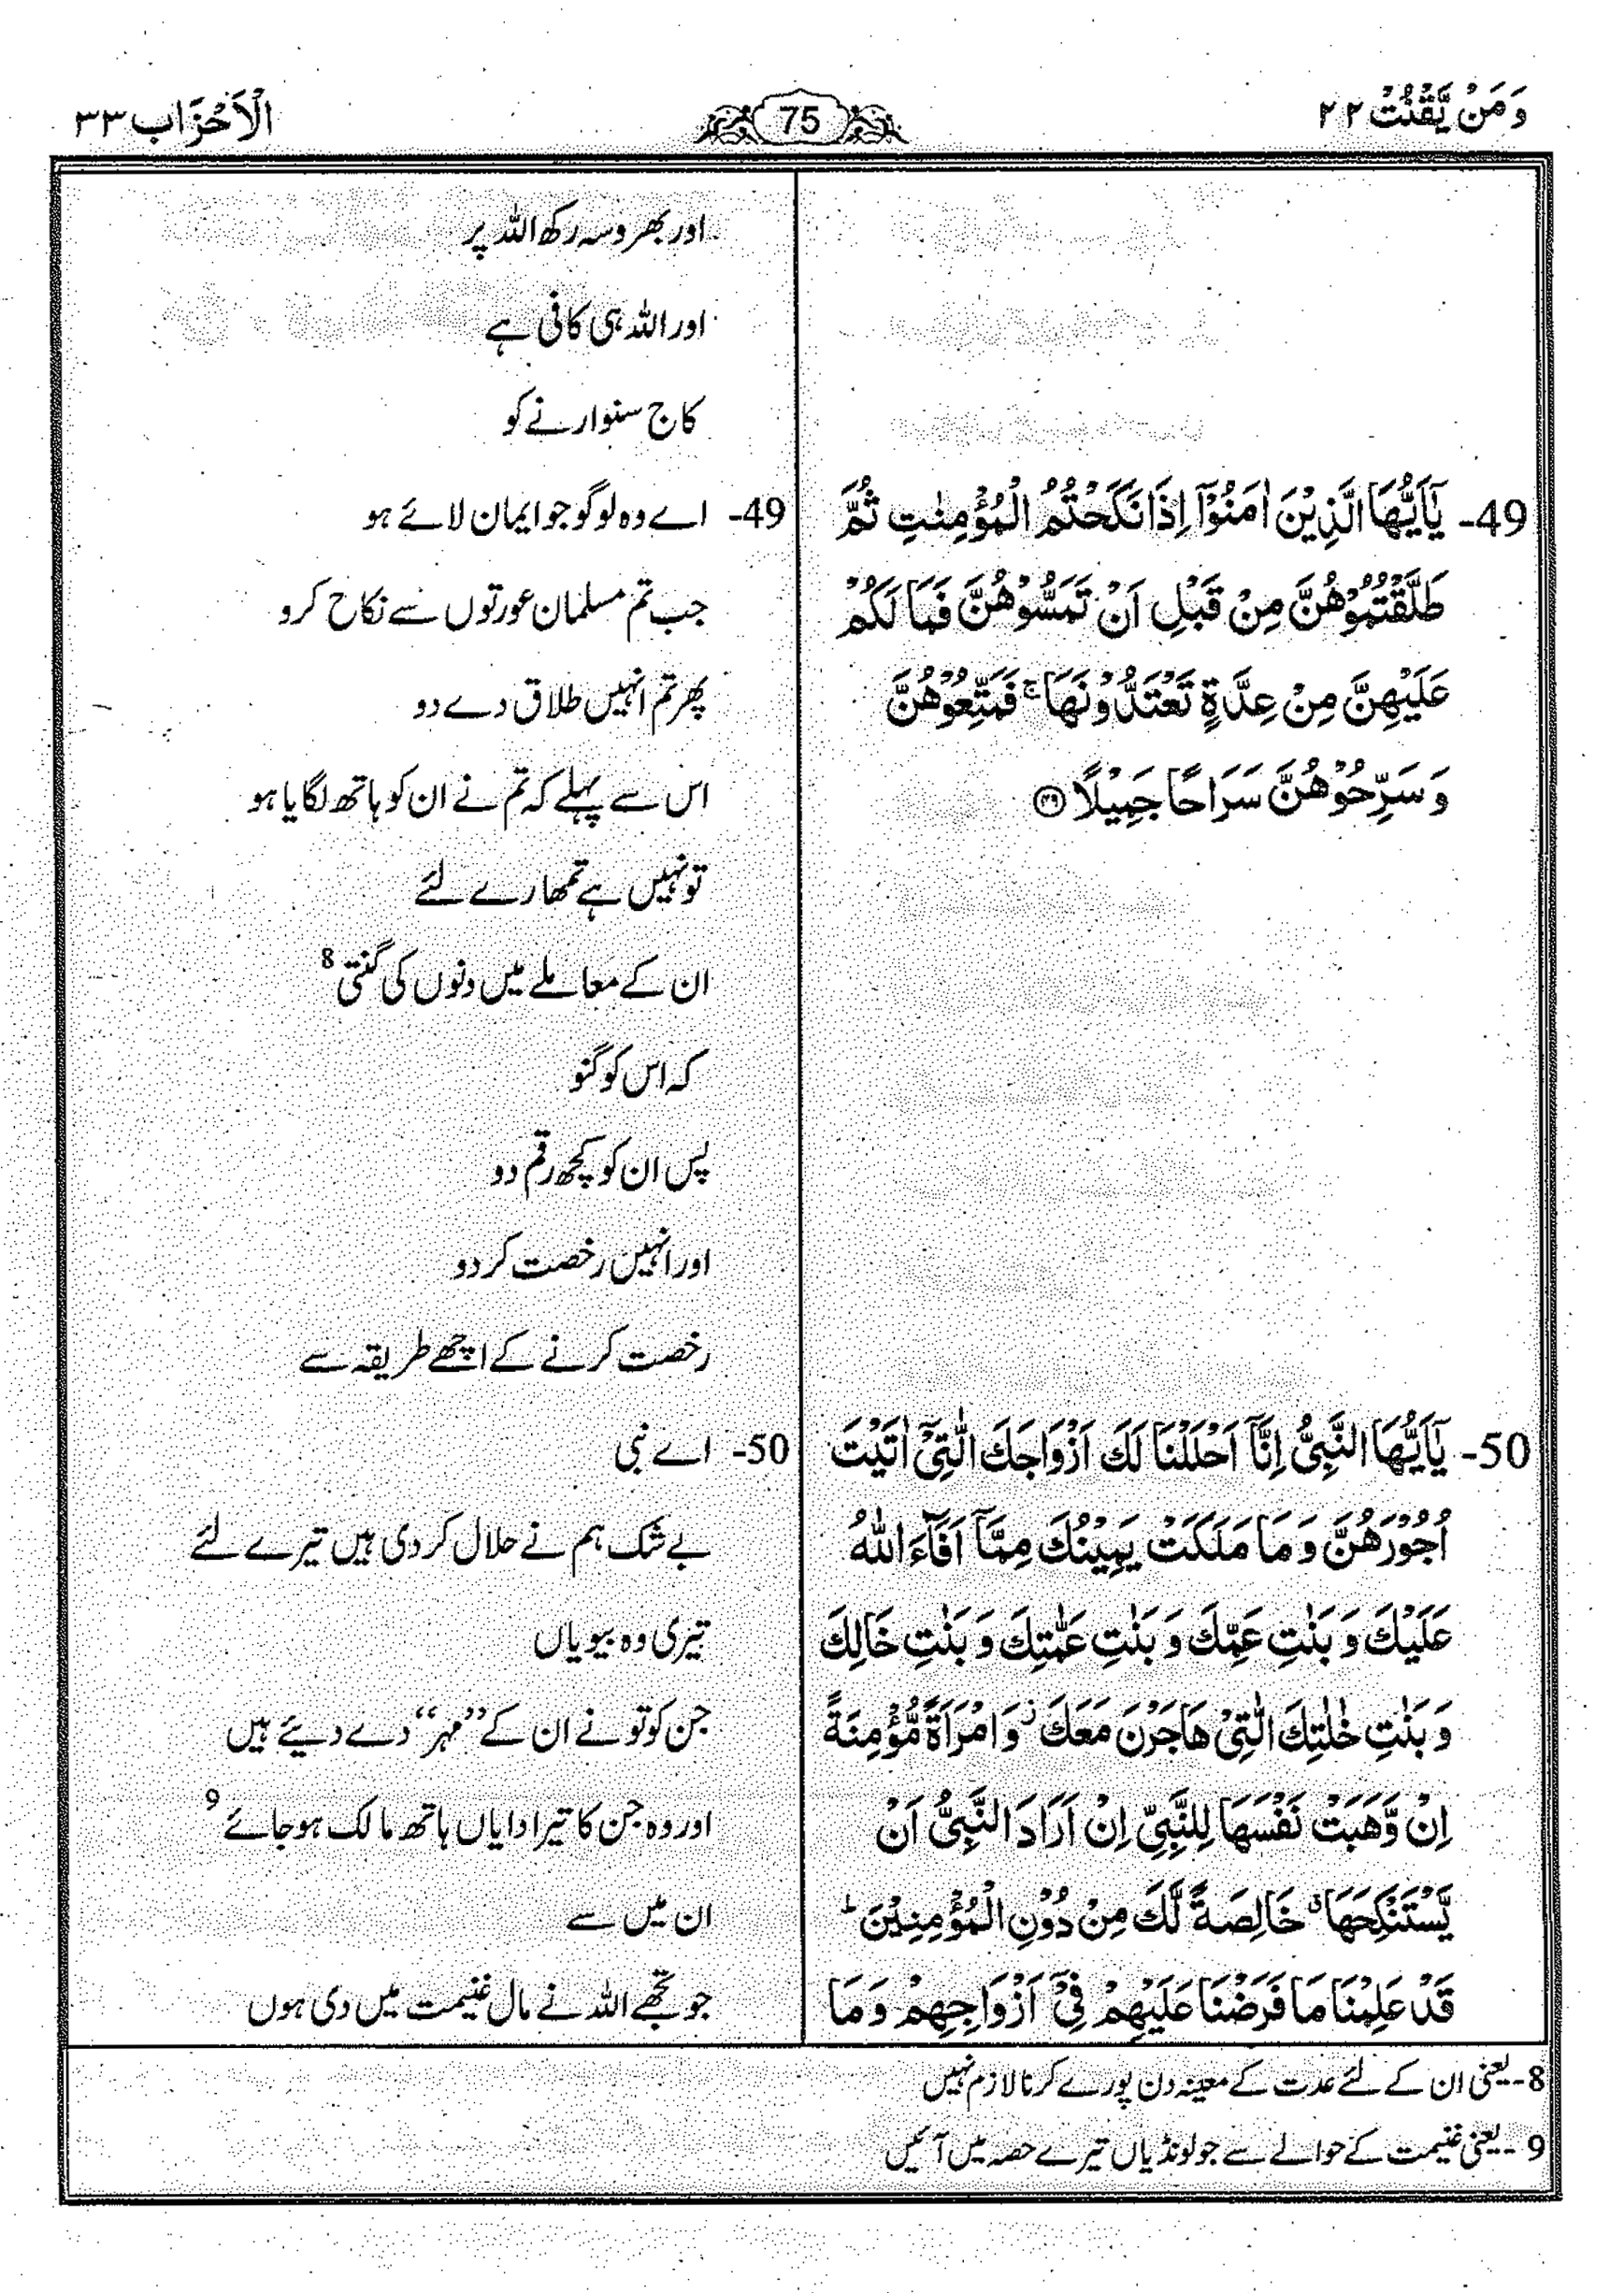 وَمَنْ يَّقْنُتْ ٢٢
75
الْاَحْزَاب ٣٣
49- يٰۤاَيُّهَا الَّذِيْنَ اٰمَنُوْۤا اِذَا نَكَحْتُمُ الْمُؤْمِنٰتِ ثُمَّ
طَلَّقْتُمُوْهُنَّ مِنْ قَبْلِ اَنْ تَمَسُّوْهُنَّ فَمَا لَكُمْ
عَلَيْهِنَّ مِنْ عِدَّةٍ تَعْتَدُّوْنَهَا ۚ فَمَتِّعُوْهُنَّ
وَسَرِّحُوْهُنَّ سَرَاحًا جَمِيْلًا ﴿٤٩﴾
50- يٰۤاَيُّهَا النَّبِيُّ اِنَّاۤ اَحْلَلْنَا لَكَ اَزْوَاجَكَ الّٰتِيْۤ اٰتَيْتَ
اُجُوْرَهُنَّ وَمَا مَلَكَتْ يَمِيْنُكَ مِمَّاۤ اَفَآءَ اللّٰهُ
عَلَيْكَ وَبَنٰتِ عَمِّكَ وَبَنٰتِ عَمّٰتِكَ وَبَنٰتِ خَالِكَ
وَبَنٰتِ خٰلٰتِكَ الّٰتِيْ هَاجَرْنَ مَعَكَ ؗ وَامْرَاَةً مُّؤْمِنَةً
اِنْ وَّهَبَتْ نَفْسَهَا لِلنَّبِيِّ اِنْ اَرَادَ النَّبِيُّ اَنْ
يَّسْتَنْكِحَهَا ۗ خَالِصَةً لَّكَ مِنْ دُوْنِ الْمُؤْمِنِيْنَ ؕ
قَدْ عَلِمْنَا مَا فَرَضْنَا عَلَيْهِمْ فِيْۤ اَزْوَاجِهِمْ وَمَا
اور بھروسہ رکھ اللہ پر
اور اللہ ہی کافی ہے
کاج سنوارنے کو
49- اے وہ لوگو جو ایمان لائے ہو
جب تم مسلمان عورتوں سے نکاح کرو
پھر تم انہیں طلاق دے دو
اس سے پہلے کہ تم نے ان کو ہاتھ لگایا ہو
تو نہیں ہے تمھارے لئے
ان کے معاملے میں دنوں کی گنتی 8
کہ اس کو گنو
پس ان کو کچھ رقم دو
اور انہیں رخصت کر دو
رخصت کرنے کے اچھے طریقہ سے
50- اے نبی
بے شک ہم نے حلال کر دی ہیں تیرے لئے
تیری وہ بیویاں
جن کو تو نے ان کے ”مہر“ دے دیئے ہیں
اور وہ جن کا تیرا دایاں ہاتھ مالک ہو جائے 9
ان میں سے
جو تجھے اللہ نے مال غنیمت میں دی ہوں
8- یعنی ان کے لئے عدت کے معینہ دن پورے کرنا لازم نہیں
9- یعنی غنیمت کے حوالے سے جو لونڈیاں تیرے حصہ میں آئیں